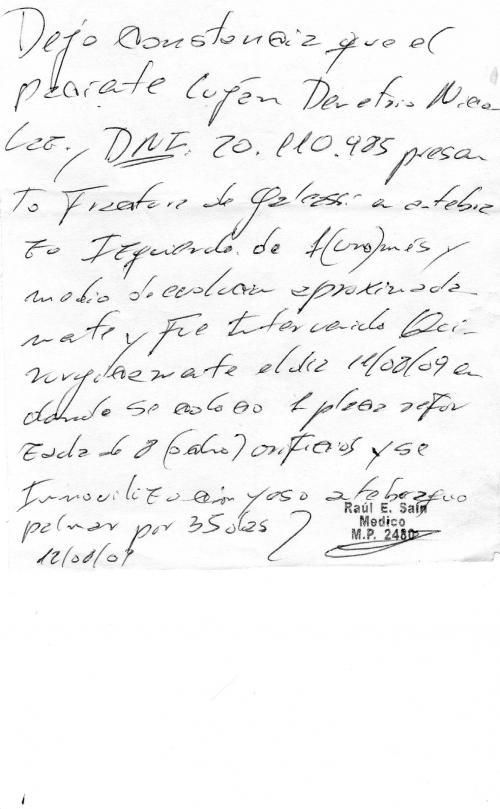 Dejo constancia que el
paciente Luján Demetrio Nico-
las, DNI: 20.110.985 presen
to Fractura de Galeazzi en antebra
zo Izquierdo de 1 (uno) mes y
medio de evolucion aproximada
mente y fue Intervenido Qui-
rurgicamente el dia 11/08/09 en
donde se coloco 1 placa refor
zada de 8 (ocho) orificios y se
Inmovilizo con yeso antebraquio
palmar por 35 dias
12/08/09
Raúl E. Saín
Medico
M.P. 2480